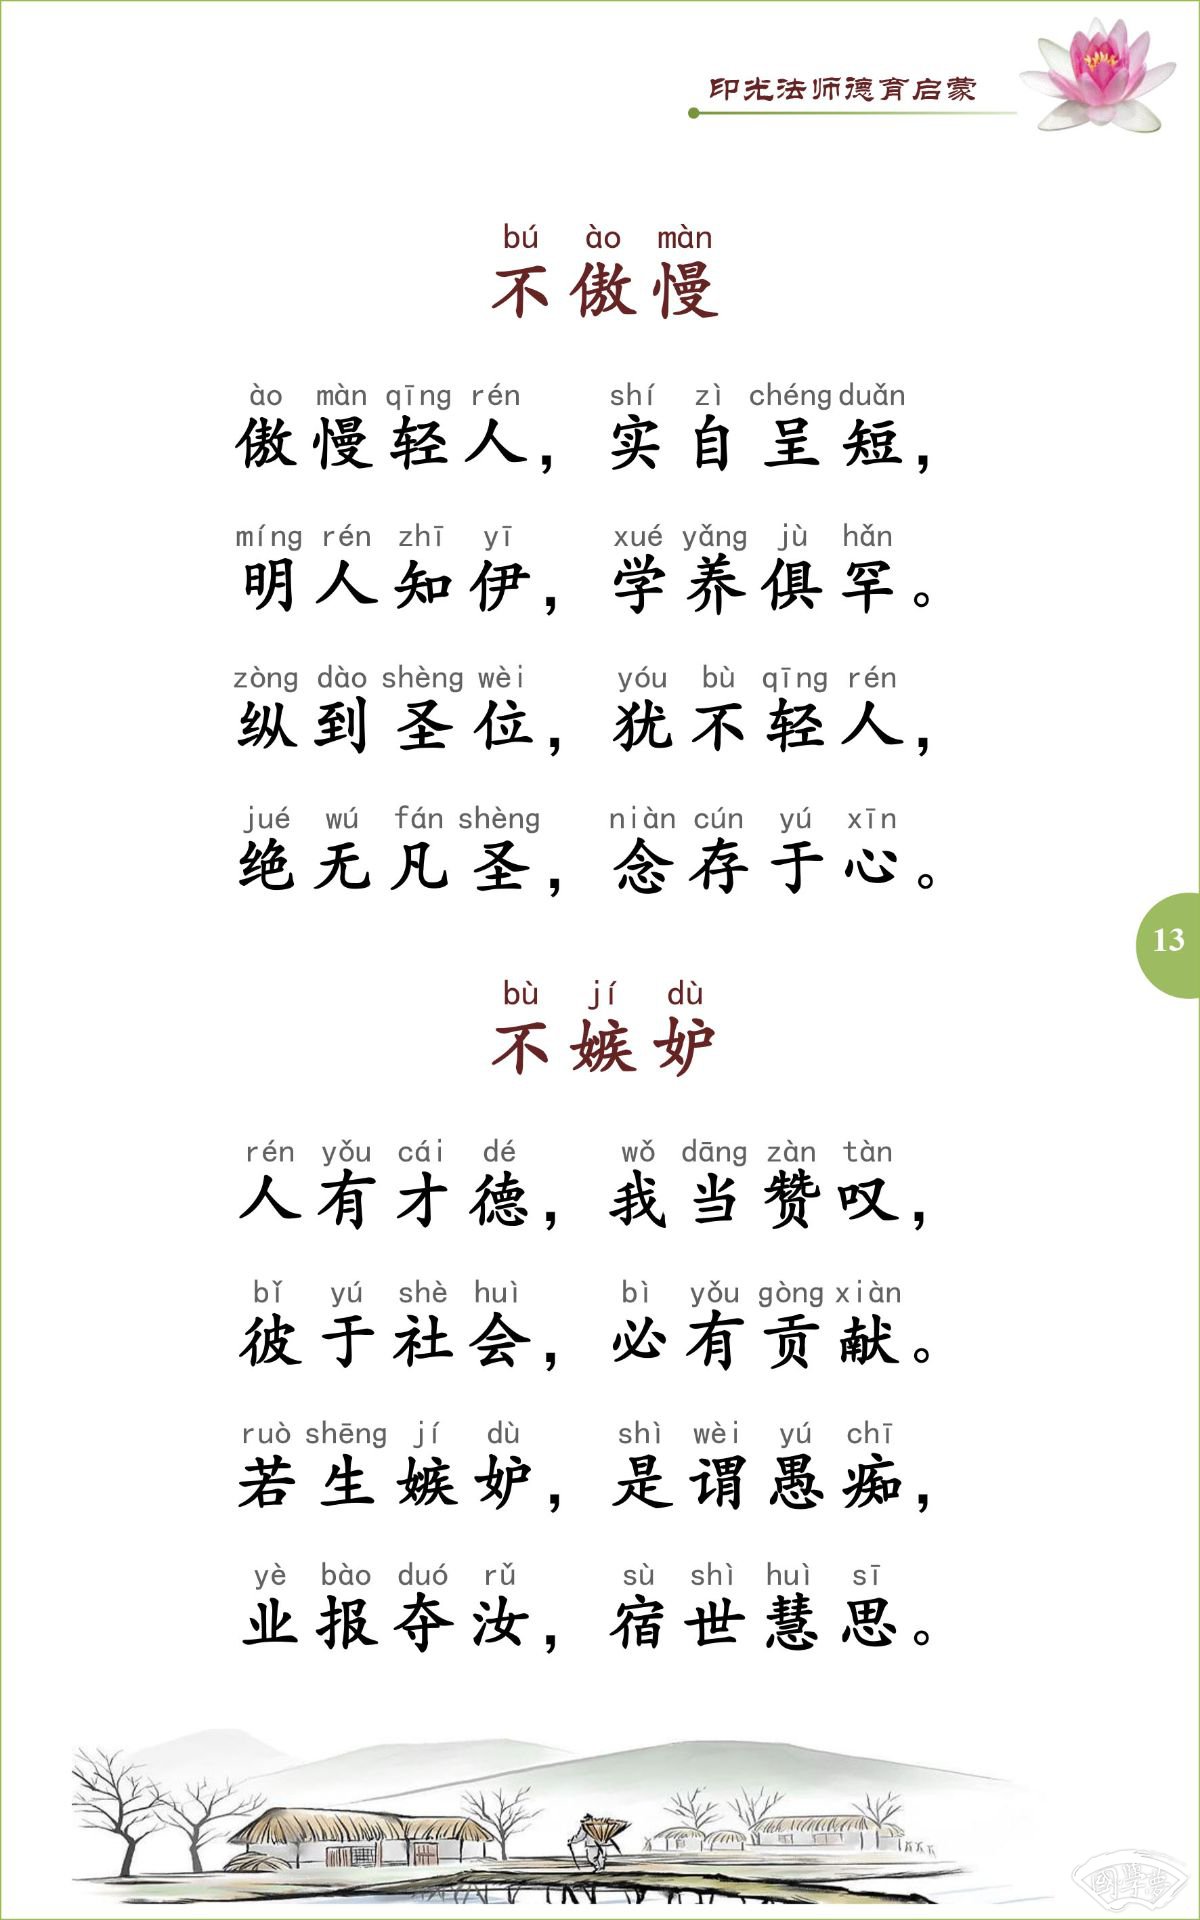 印光法师德育启蒙
bú ào màn
不傲慢
ào màn qīng rén shí zì chéng duǎn
傲慢轻人，实自呈短，
míng rén zhī yī xué yǎng jù hǎn
明人知伊，学养俱罕。
zòng dào shèng wèi yóu bù qīng rén
纵到圣位，犹不轻人，
jué wú fán shèng niàn cún yú xīn
绝无凡圣，念存于心。
13
bù jí dù
不嫉妒
rén yǒu cái dé wǒ dāng zàn tàn
人有才德，我当赞叹，
bǐ yú shè huì bì yǒu gòng xiàn
彼于社会，必有贡献。
ruò shēng jí dù shì wèi yú chī
若生嫉妒，是谓愚痴，
yè bào duó rǔ sù shì huì sī
业报夺汝，宿世慧思。
國學夢